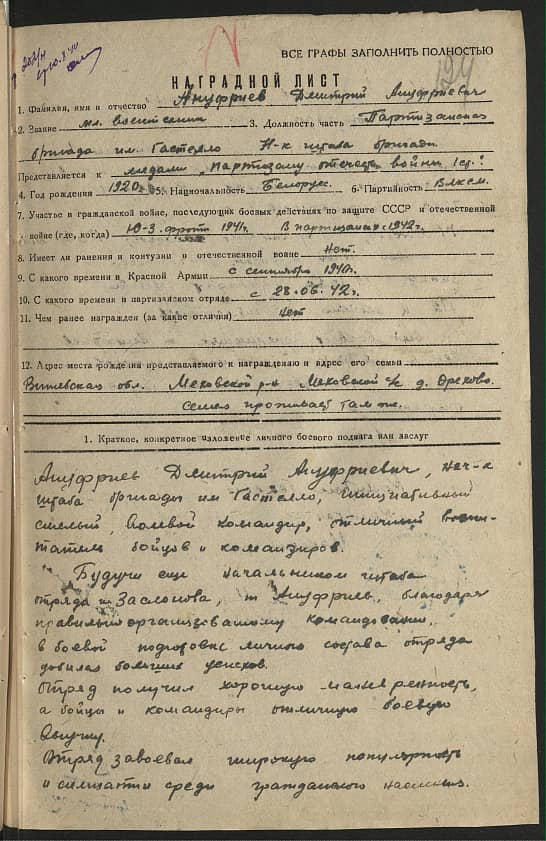 ВСЕ ГРАФЫ ЗАПОЛНИТЬ ПОЛНОСТЬЮ
НАГРАДНОЙ ЛИСТ
1. Фамилия, имя и отчество Ануфриев Дмитрий Ануфриевич
2. Звание мл. воентехник 3. Должность часть Партизанская
бригада им. Гастелло Н-к штаба бригады
Представляется к медали „Партизану отечеств войны I ст."
4. Год рождения 1920 5. Национальность Белорус. 6. Партийность Влксм.
7. Участие в гражданской войне, последующих боевых действиях по защите СССР и отечественной
войне (где, когда) Ю-З. фронт 1941г. В партизанах с 1942г.
8. Имеет ли ранения и контузии в отечественной войне Нет.
9. С какого времени в Красной Армии с сентября 1940г.
10. С какого времени в партизанском отряде с 28.06.42г.
11. Чем ранее награжден (за какие отличия) нет
12. Адрес места рождения представляемого к награждению и адрес его семьи
Витебская обл. Меховской р-н Меховской с/с д. Орехово.
Семья проживает там же.
1. Краткое, конкретное изложение личного боевого подвига или заслуг
Ануфриев Дмитрий Ануфриевич, Нач-к
штаба бригады им Гастелло, инициативный
смелый, волевой командир, отличный воспи-
татель бойцов и командиров.
Будучи еще начальником штаба
отряда Заслонова, т Ануфриев, благодаря
правильно организованому командованию,
в боевой подготовке личного состава отряда
добился больших успехов.
Отряд получил хорошую маневренность,
а бойцы и командиры отличную боевую
выучку.
Отряд завоевал широкую популярность
и симпатии среди гражданского населения.